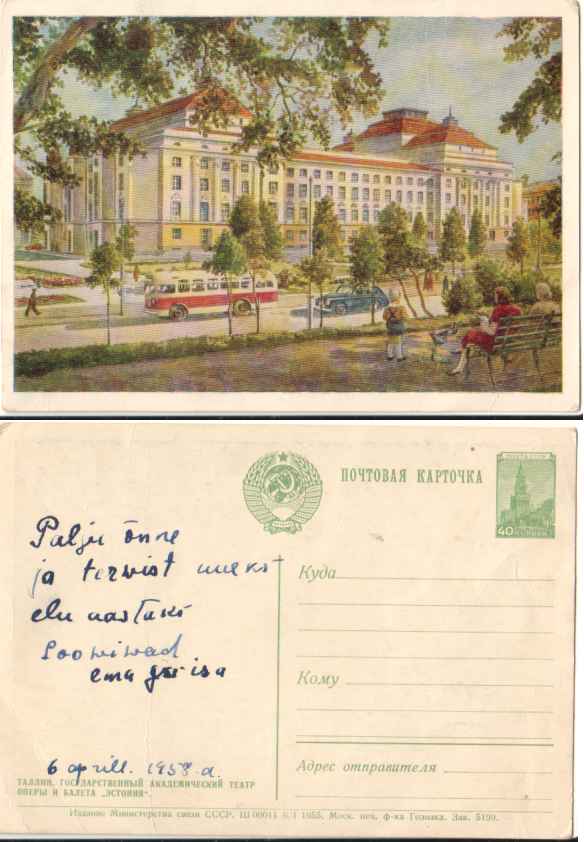 ПОЧТОВАЯ КАРТОЧКА
ПОЧТА СССР
40
КОПЕЕК
Palju õnne
ja terwist uueks
elu aastaks
Soowiwad
ema ja isa
6 aprill. 1958. a.
Куда
Кому
Адрес отправителя
ТАЛЛИН. ГОСУДАРСТВЕННЫЙ АКАДЕМИЧЕСКИЙ ТЕАТР
ОПЕРЫ И БАЛЕТА „ЭСТОНИЯ".
Издание Министерства связи СССР. Ш 00011 1955. Моск. печ. ф-ка Гознака. Зак. 5199.